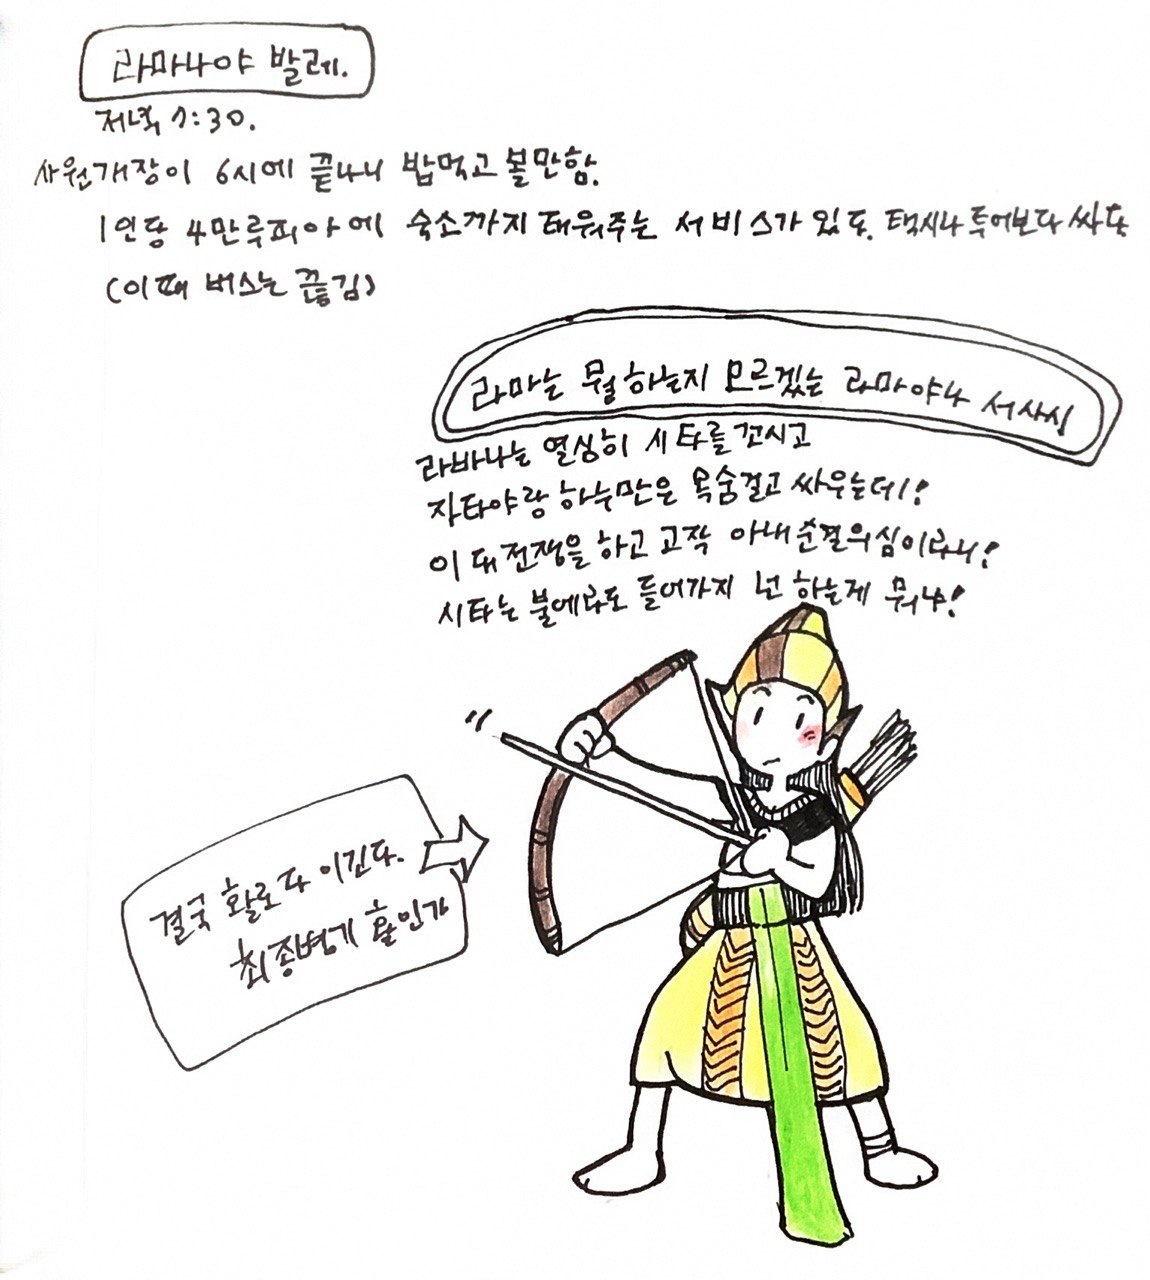 라마나야 발레.
저녁 7:30.
사원개장이 6시에 끝나니 밥먹고 볼만함.
1인당 4만루피아에 숙소까지 태워주는 서비스가 있다. 택시나 투어보다 싸다
(이때 버스는 끊김)
라마는 뭘 하는지 모르겠는 라마야나 서사시
라바나는 열심히 시타를 꼬시고
자타야랑 하누만은 목숨걸고 싸우는데!
이 대전쟁을 하고 고작 아내순결의심이라니!
시타는 불에라도 들어가지 넌 하는게 뭐냐!
결국 활로다 이긴다.
최종병기 활인가